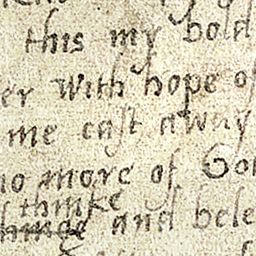 this my bold
er with hope of
me cast away
no more of Go
thinke
and bele